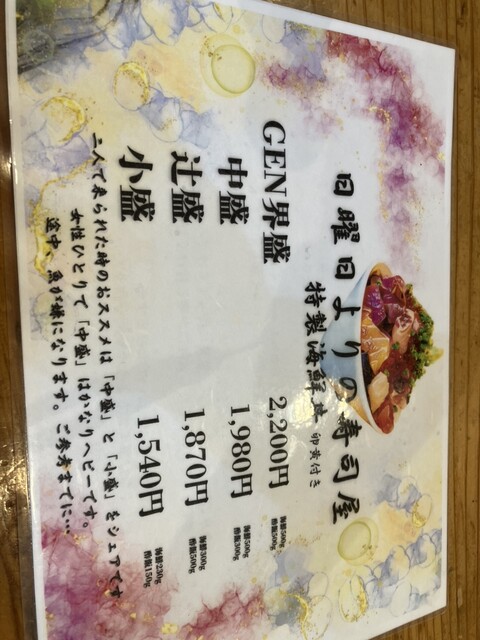 日曜日よりの寿司屋
特製海鮮丼 卵黄付き
GEN界盛 2,200円 海鮮500g 酢飯500g
中盛 1,980円 海鮮500g 酢飯300g
辻盛 1,870円 海鮮300g 酢飯500g
小盛 1,540円 海鮮230g 酢飯150g
二人で来られた時のおススメは「中盛」と「小盛」をシェアです
女性ひとりで「中盛」はかなりヘビーです。
途中、魚が嫌になります。ご参考までに…